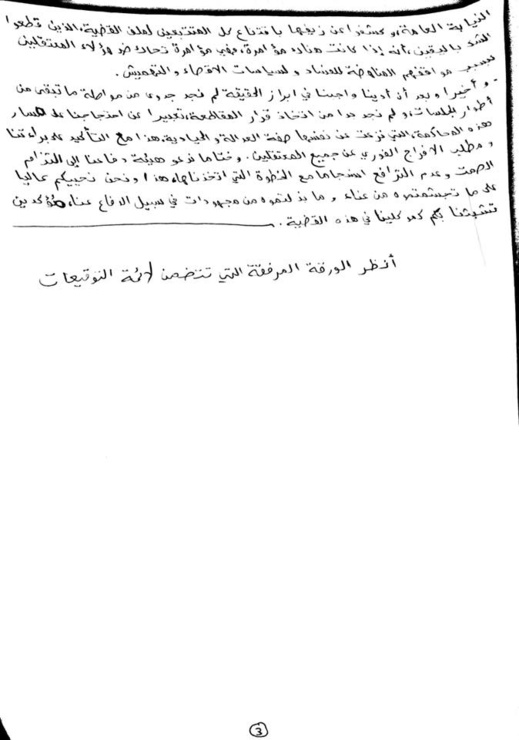 النيابة العامة، وكشفنا عن زيفها باقتناع كل المتتبعين لملف القضية، الذين قطعوا
الشك باليقين، أنه إذا كانت هناك مؤامرة، فهي مؤامرة تحاك ضد هؤلاء المعتقلين
بسبب مواقفهم المناهضة للفساد ولسياسات الاقصاء والتهميش.
- وأخيرا وبعد أن أدينا واجبنا في ابراز الحقيقة لم نجد جدوى من مواصلة ما تبقى من
أطوار الجلسات، ولم نجد بدا من اتخاذ قرار المقاطعة، تعبيرا عن احتجاجنا على مسار
هذه المحاكمة، التي نزعت عن نفسها صفة العدالة والحيادية، هذا مع التأكيد على براءتنا
ومطلب الافراج الفوري عن جميع المعتقلين. وختاما ندعو هيئة دفاعنا إلى التزام
الصمت وعدم الترافع انسجاما مع الخطوة التي اتخذناها، هذا ونحن نحييكم عاليا
على ما تجشمتموه من عناء وما بذلتموه من مجهودات في سبيل الدفاع عنا، مؤكدين
تشبثنا بكم كموكلينا في هذه القضية.
أنظر الورقة المرفقة التي تتضمن لائحة التوقيعات
3